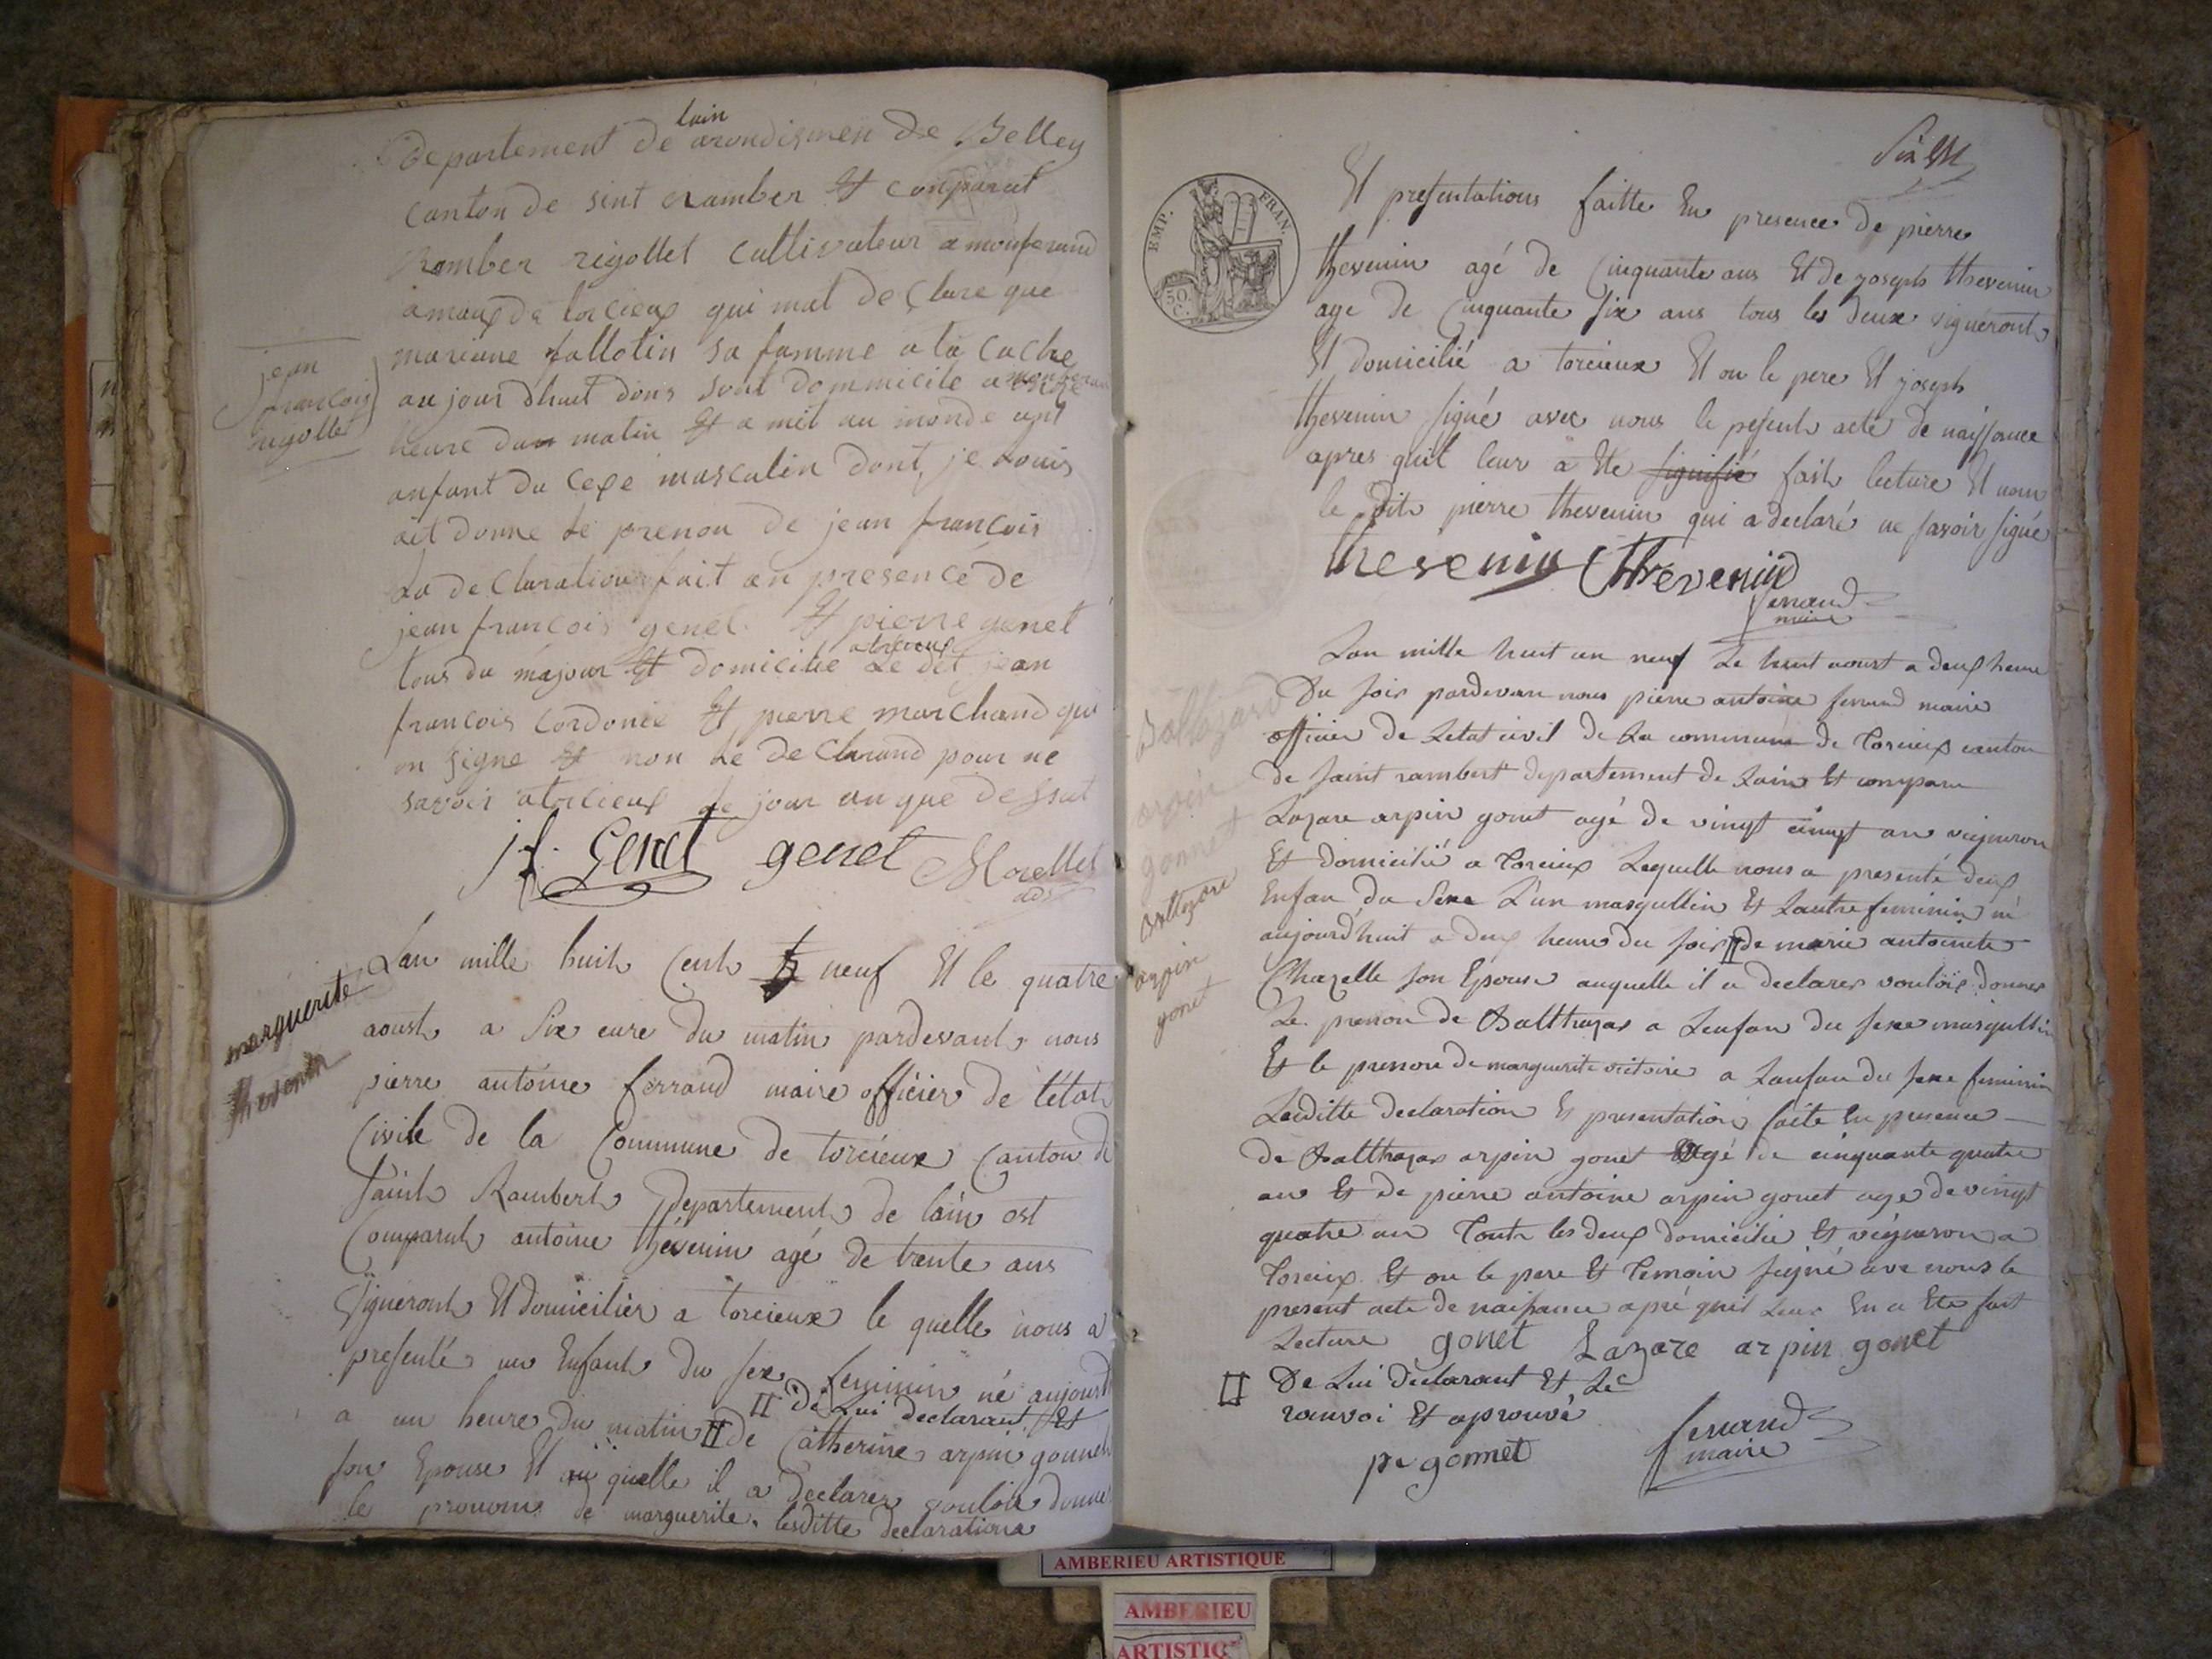 Departement de lain arondismen de Belley
canton de sint ramber Et conparut
Ramber rigollet cultivateur a monferand
amaux de torcieux qui mat de clare que
mariane fallotin sa famme a la cuche
au jour dhuit dans sont dommicile a
heure du matin Et a mit au monde unt
anfant du cexe masculin dont je Louis
ait donne le prenon de jean francois
La de claration fait en presence de
jean francois genet Et pierre genet
tous du majour Et domicilie a torcieux Le dit jean
francois cordonie Et pierre marchand qui
on signe Et non Le de clarand pour ne
savoir a torcieux le jour an que dessut
jf. Genet genet Morellet
adj
jean
francois
rigollet
Lan mille huit Cent neuf Et le quatre
aoust a Six eure du matin pardevant nous
pierre antoine ferrand maire officier de l'état
Civile de la Commune de torcieux Canton de
Saint Rambert departement de lain est
Comparut antoine thévenin agé de trente ans
vigneront Et domicilier a torcieux le quelle nous a
presenté un Enfant du sex feminin né aujourd
a un heure du matin II de Catherine arpin gonnet
II de Lui declarant Et
son Epouse Et au quelle il a declarer vouloir donner
le pronom de marguerite. lesditte declarations
marguerite
thevenin
EMP. FRAN.
50 C.
Et presentations faitte En presence de pierre
thevenin agé de Cinquante ans Et de joseph thevenin
age de Cinquante six ans tous les deux vigneront
Et domicilié a torcieux Et on le pere Et joseph
thevenin signé avec nous le present acte de naissance
apres quil leur a Ete signifié fait lecture Et non
le dit pierre thevenin qui a declaré ne savoir signé
thevenin Thevenin
ferrand
maire
Lan mille huit an neuf Le huit aoust a deux heure
Du soir pardevan nous pierre antoine ferrand maire
officier de Letat civil de La commune de Torcieux canton
de saint rambert departement de Lain Et compare
Lazare arpin gonet agé de vingt cinqt an vigneron
Et domicilié a Torcieux Lequelle nous a presenté deux
Enfan du Sexe L'un masqullin Et Lautre feminin né
aujourd'huit a deux heure du soir II de marie antoinete
Chazelle son Epouse auquelle il a declarer vouloir donner
Le prenon de Balthazar a Lenfan du sexe masqullin
Et le prenon de marguerite victoire a Lanfan du sexe feminin
Leditte declaration Et presentation faite En presence
de Balthazar arpin gonet agé de cinquante quatre
an Et de pierre antoine arpin gonet age de vingt
quatre an Tout les deux domicilie Et vigneron a
Torcieux Et on le pere Et Temoin signé ave nous le
present acte de naissance apré quil Leur En a Ete fait
Lecture gonet Lazare arpin gonet
II De Lui declarant Et Le
ranvoi Et aprouvé
pa gonnet ferrand
maire
Baltazard
arpin
gonnet
Baltazare
arpin
gonet
AMBERIEU ARTISTIQUE
AMBERIEU
ARTISTIQ